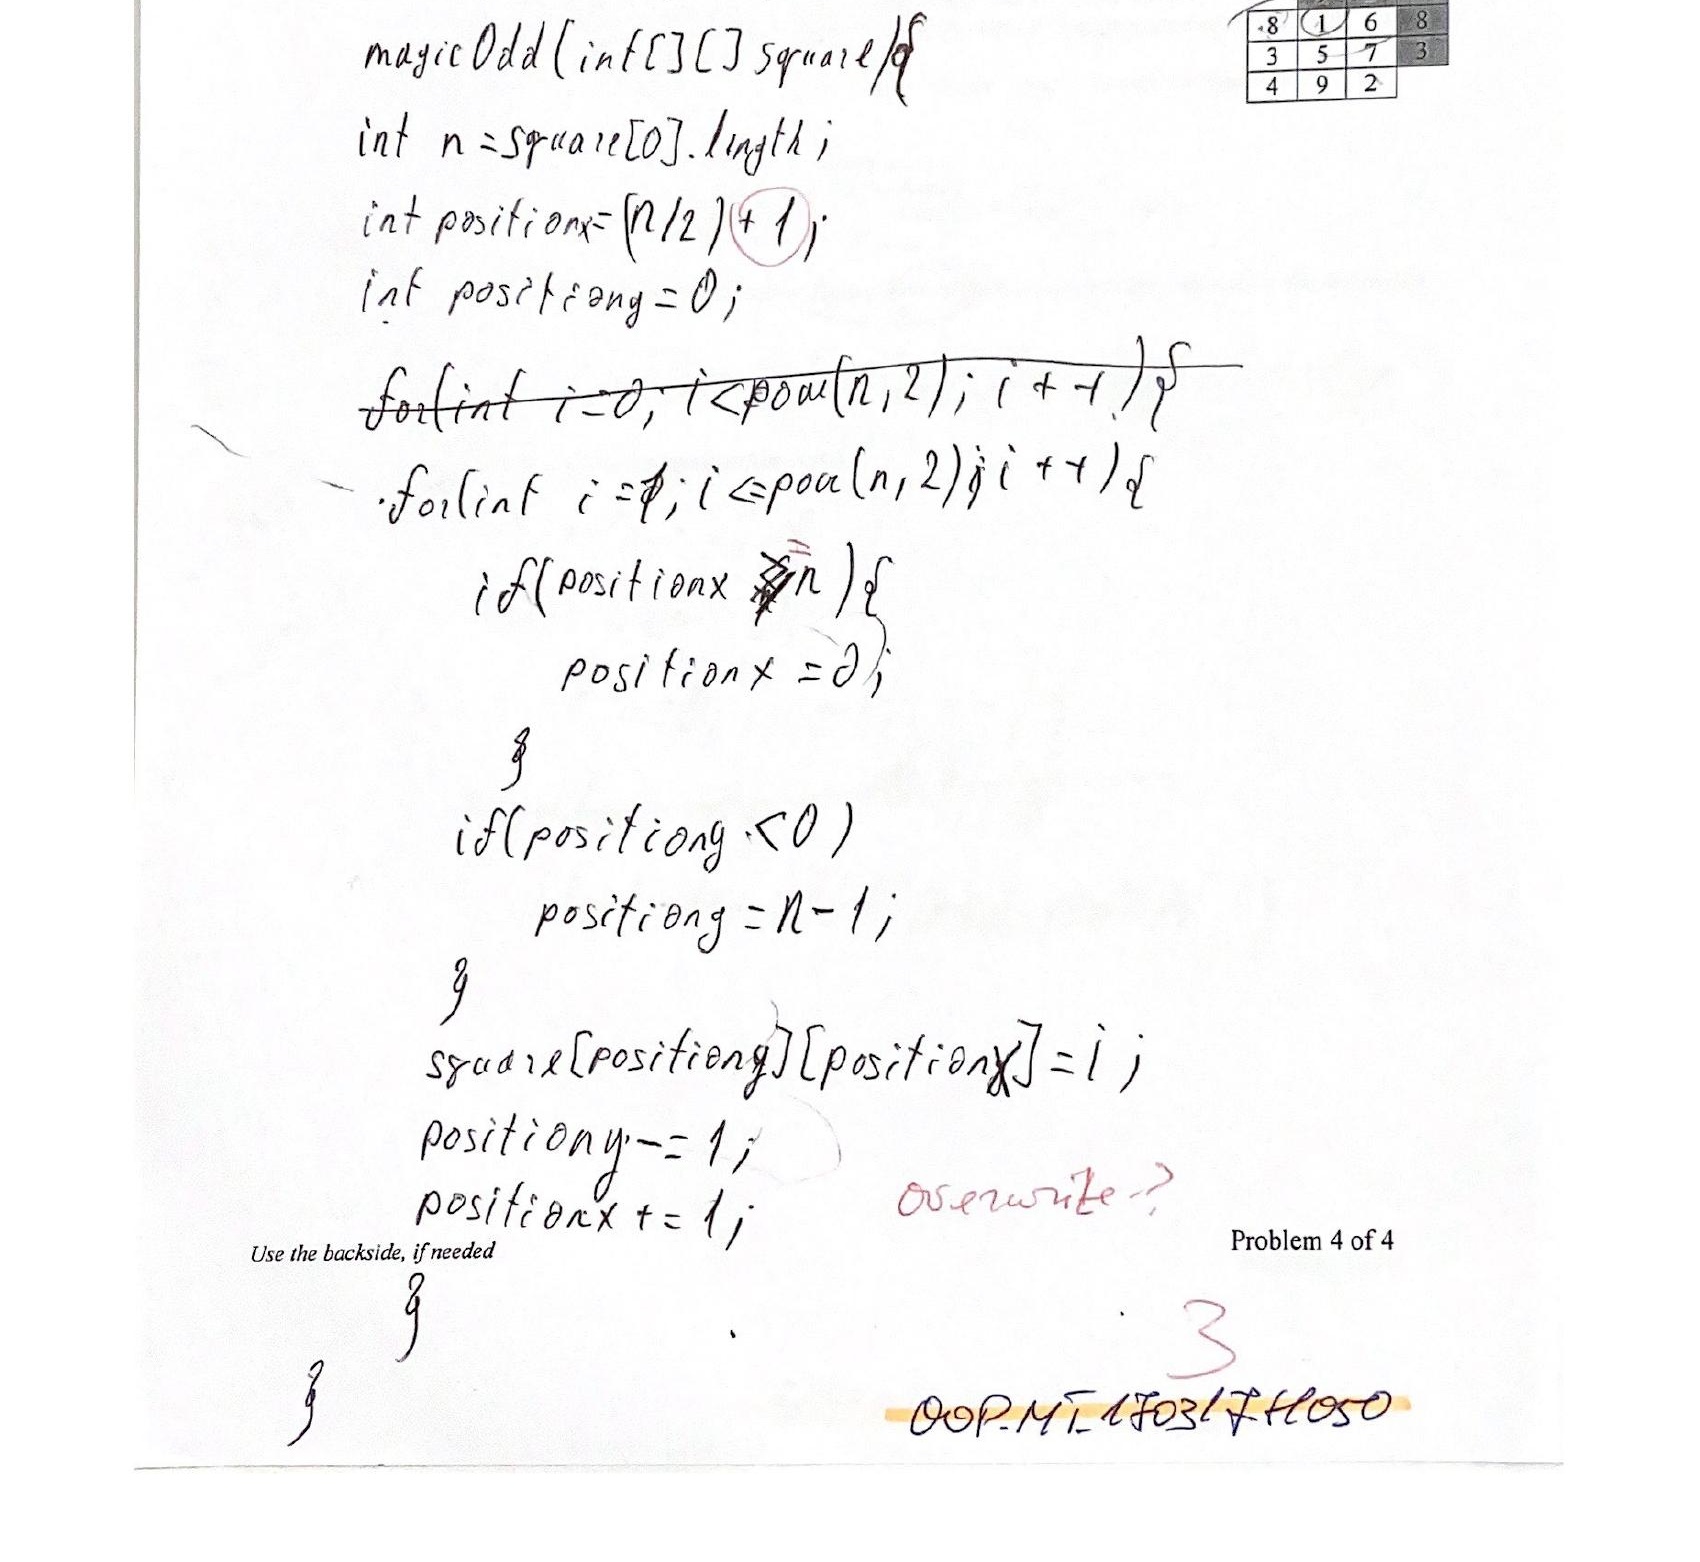 8 1 6 8
3 5 7 3
4 9 2
magicOdd(int[][] square){
int n=square[0].length;
int positionx=(n/2)+1;
int positiony=0;
for(int i=0; i<pow(n,2); i++){
for(int i=1; i<=pow(n,2); i++){
if(positionx = n){
positionx =0;
}
if(positiony <0)
positiony =n-1;
}
square[positiony][positionx]=i;
positiony-=1;
positionx+=1;
overwrite?
Use the backside, if needed
Problem 4 of 4
}
3
}
OOP.MT.170317.H050